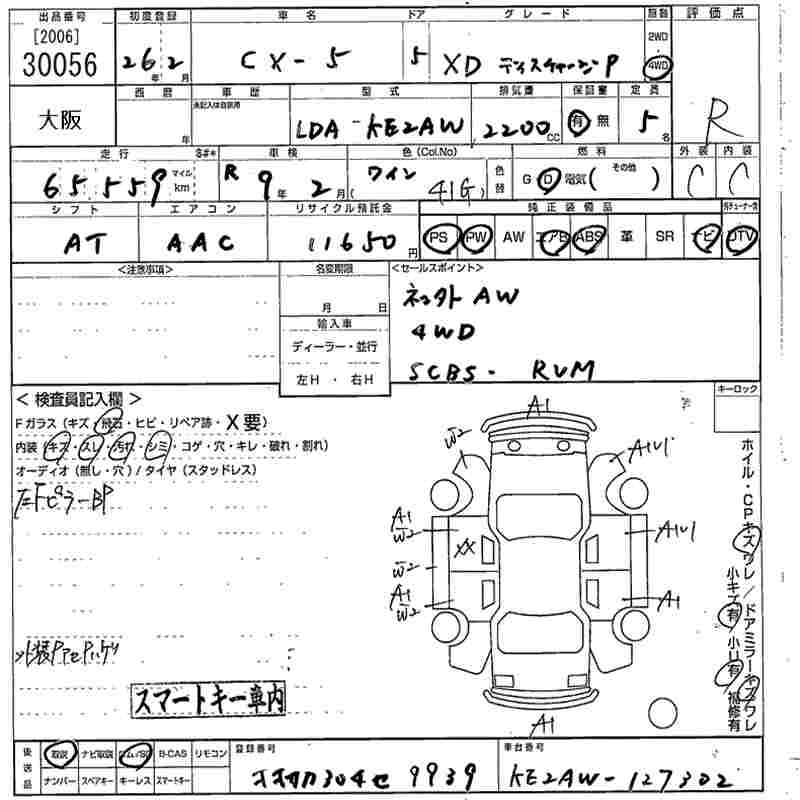 出品番号 初度登録 車名 ドア グレード 原動 評価点
[2006] 30056 26年2月 CX-5 5 XD ディスチャージP 2WD 4WD R
大阪 西暦 年 車歴 未記入は自家用 型式 排気量 保証書 定員
LDA-KE2AW 2200cc 有 無 5名
走行 車検 色(Col.No) 色替 燃料 外装 内装
65559 マイル km R9年2月 ワイン (41G) G D 電気 ( その他 ) C C
シフト エアコン リサイクル預託金 純正装備品
AT AAC 11650円 PS PW AW エアB ABS 革 SR ナビ DTV
<注意事項> 名変期限 <セールスポイント>
月 日 ネット外AW
輸入車 4WD
ディーラー・並行 SCBS・RVM
左H・右H
<検査員記入欄> キーロック
Fガラス (キズ・飛石・ヒビ・リペア跡・X要)
内装 (キズ・スレ・汚れ・シミ・コゲ・穴・キレ・破れ・割れ)
オーディオ (無し・穴) / タイヤ (スタッドレス)
左FピラーBP
スマートキー車内
A1
W2 A1U1
A1 W2 XX A1U1
W2
A1 W2 A1
A1
ホイル・CPキズワレ / ドアミラーキズワレ
小キズ有 / 小U有 補修有
後送品 取説 ナビ取説 B-CAS リモコン 登録番号 車台番号
ナンバー スペアキー キーレス スマートキー 304セ 9939 KE2AW-127302